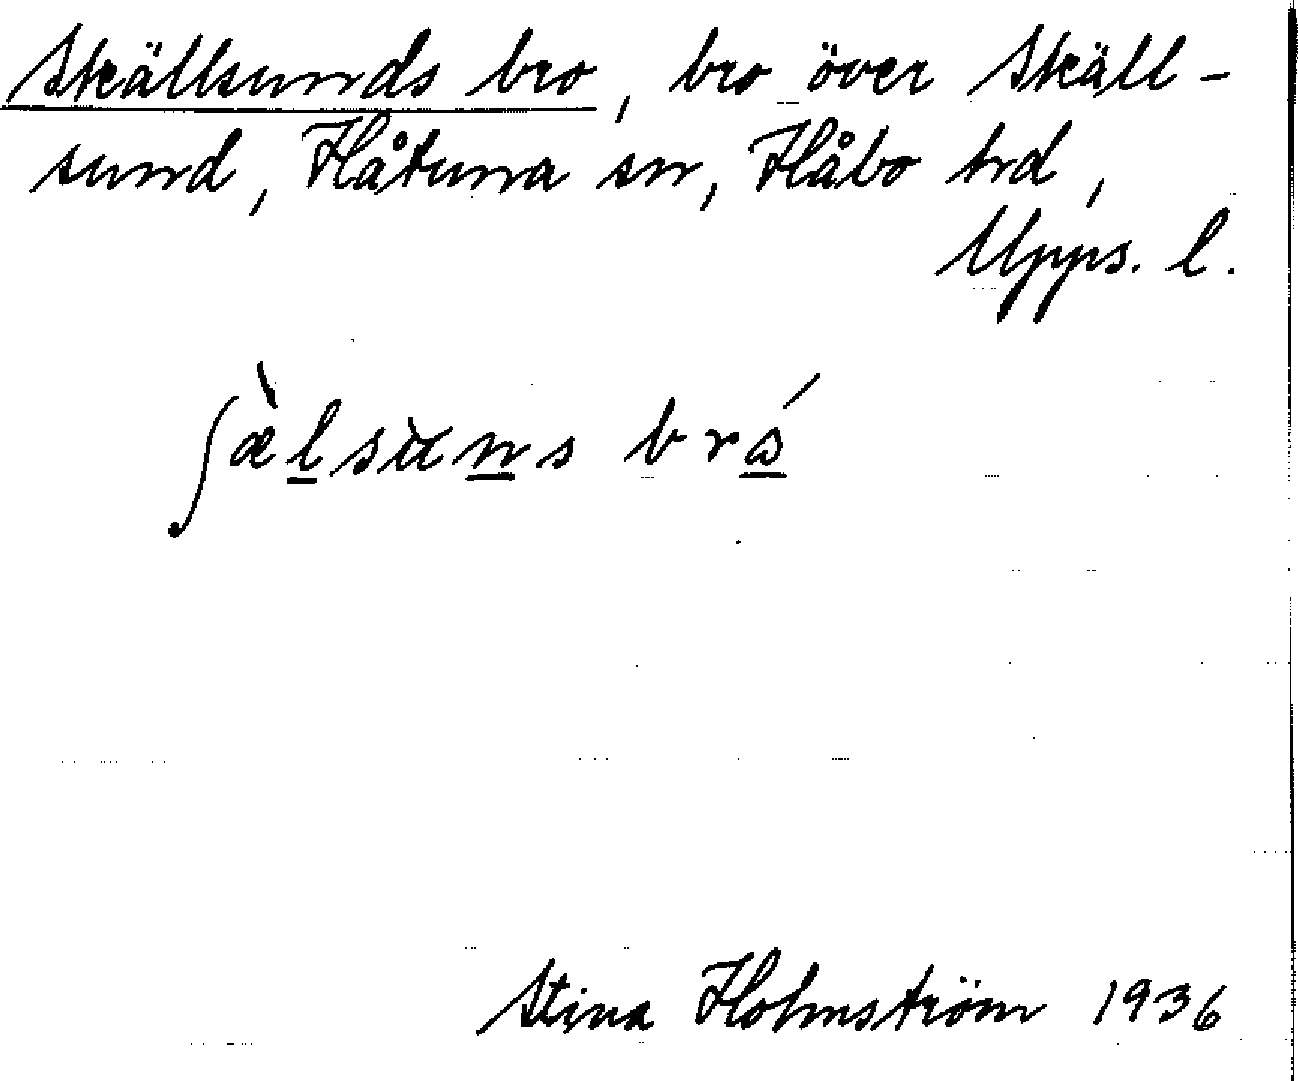 Skällsunds bro, bro över Skäll-
sund, Håtuna sn, Håbo hd,
Upps. l.
ʃæ̀lsùns brɷ́
Stina Holmström 1936